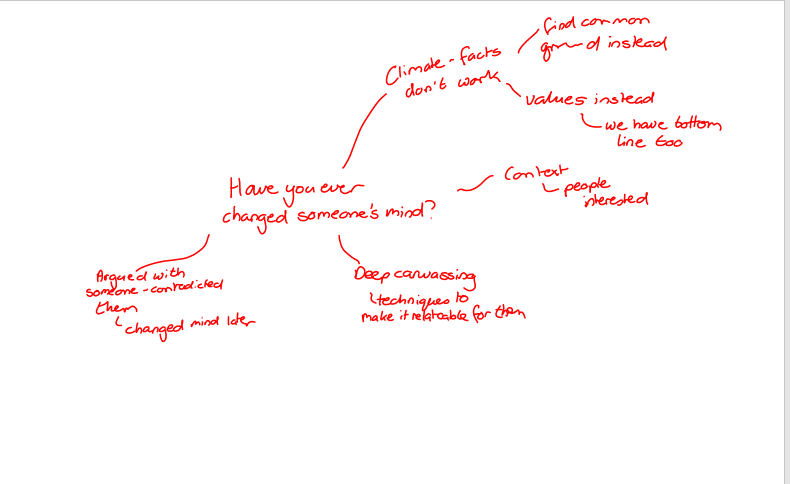 Climate - facts
don't work
find common
ground instead
values instead
we have bottom
line too
Have you ever
changed someone's mind?
Context
people
interested
Argued with
someone - contradicted
them
changed mind later
Deep canvassing
techniques to
make it relatable for them